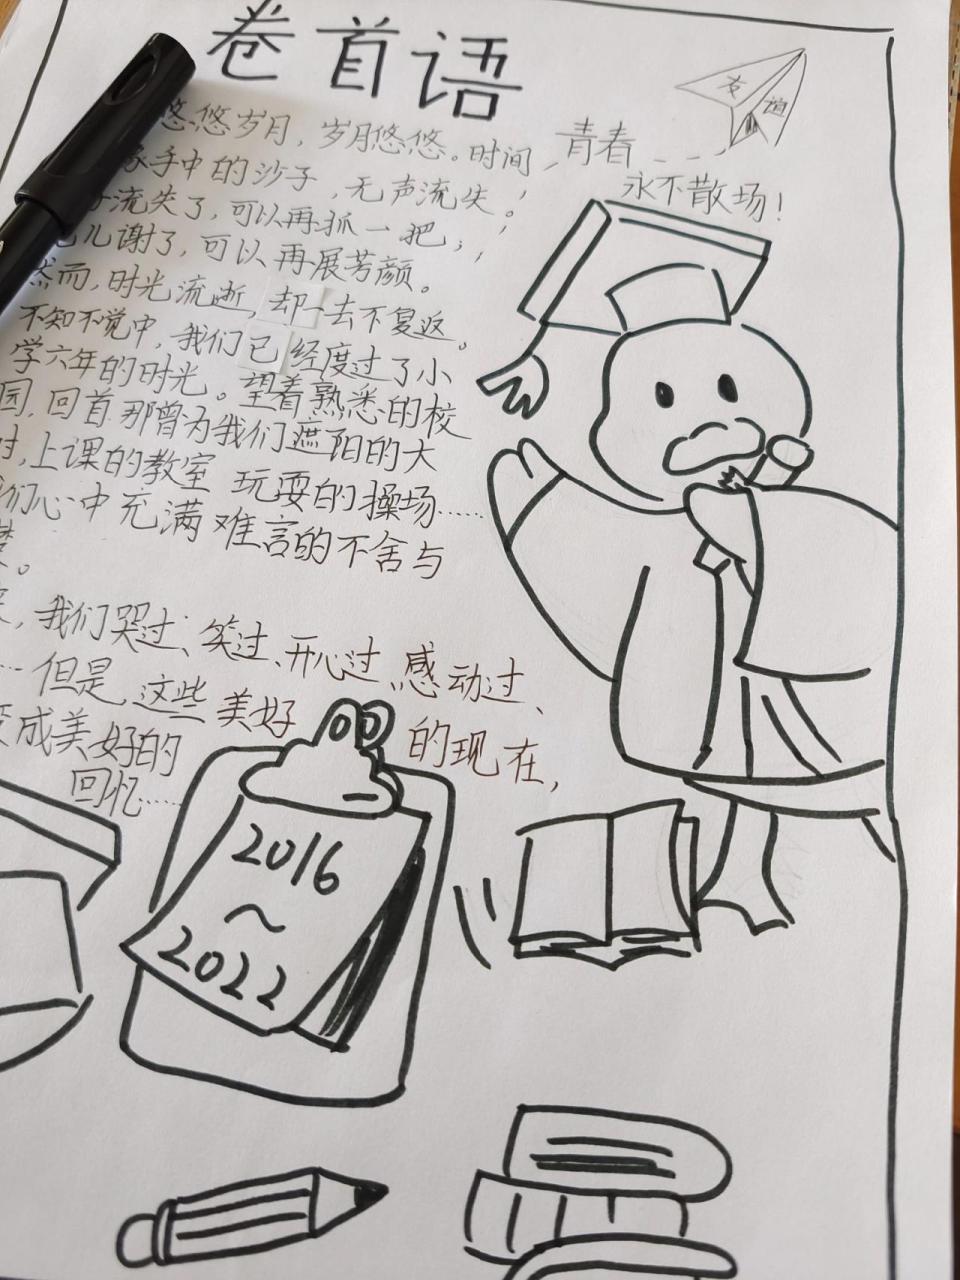 卷首语
悠悠岁月，岁月悠悠。时间
手中的沙子，无声流失。
流失了，可以再抓一把；
儿谢了，可以再展芳颜。
然而，时光流逝，却一去不复返。
不知不觉中，我们已经度过了小
学六年的时光。望着熟悉的校
园，回首那曾为我们遮阳的大
，上课的教室 玩耍的操场……
们心中充满难言的不舍与
。
，我们哭过、笑过、开心过、感动过、
…但是，这些美好
的现在，
成美好的
回忆……
友谊
青春
永不散场！
2016
~
2022